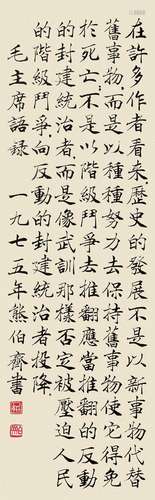 在許多作者看來,歷史的發展不是以新事物代替
舊事物,而是以種種努力去保持舊事物使它得免
於死亡;不是以階級鬥爭去推翻應當推翻的反動
的封建統治者,而是像武訓那樣否定被壓迫人民
的階級鬥爭,向反動的封建統治者投降。
毛主席語錄 一九七五年熊伯齊書